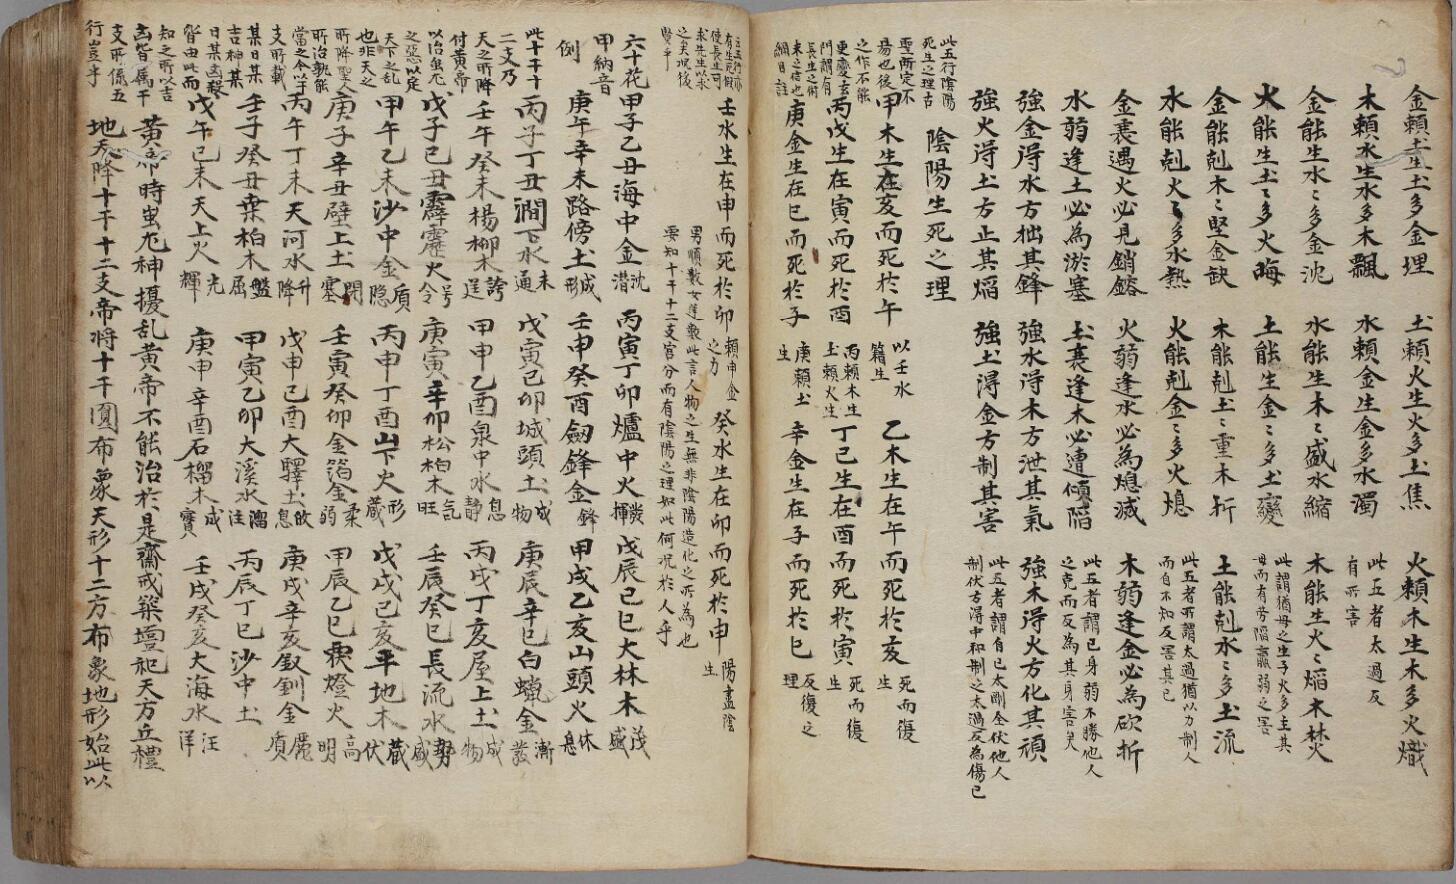 金賴土生土多金埋　土賴火生火多土焦　火賴木生木多火熾
木賴水生水多木飄　水賴金生金多水濁　此五者太過反有所害
金能生水水多金沈　水能生木木盛水縮　木能生火火熖木焚
火能生土土多火晦　土能生金金多土變　此謂猶母之生子火多主其母而有勞陷羸弱之害
金能剋木木堅金缺　木能剋土土重木折　土能剋水水多土流
水能剋火火多水熱　火能剋金金多火熄　此五者所謂太過猶以力制人而自不知反害其已
金衰遇火必見銷鎔　火弱逢水必為熄滅　木弱逢金必為砍折
水弱逢土必為淤塞　土衰逢木必遭傾陷　此五者謂已身弱不勝他人之克而反為其身害矣
強金淂水方拙其鋒　強水淂木方泄其氣　強木淂火方化其頑
強火淂土方止其熖　強土淂金方制其害　此五者謂自已太剛全伏他人制伏方得中和制之太過反為傷已
陰陽生死之理
此五行陰陽死生之理古聖所定不易也後之作不能更慶玄門謂有長生之術未之信也
甲木生在亥而死於午　以壬水籍生　乙木生在午而死於亥　死而復生
丙戊生在寅而死於酉　丙賴木生土賴火生　丁己生在酉而死於寅　死而復生
庚金生在巳而死於子　庚賴土生　辛金生在子而死於巳　反復之理
壬水生在申而死於卯　賴申金之力　癸水生在卯而死於申　陽盡陰生
男順數女逆數此言人物之生無非陰陽造化之所為也
要知十干十二支官分而有陰陽之理如此何况於人乎
六十花甲納音例
甲子乙丑海中金沈潛　丙寅丁卯爐中火炎揮　戊辰己巳大林木茂盛
庚午辛未路傍土成形　壬申癸酉劔鋒金鋒　甲戌乙亥山頭火休息
丙子丁丑澗下水未通　戊寅己卯城頭土成物　庚辰辛巳白蠟金漸發
壬午癸未楊柳木　甲申乙酉泉中水息靜　丙戌丁亥屋上土成物
戊子己丑霹靂火号令　庚寅辛卯松栢木氣旺　壬辰癸巳長流水勢盛
甲午乙未沙中金質隱　丙申丁酉山下火形藏　戊戌己亥平地木藏伏
庚子辛丑壁上土閉塞　壬寅癸卯金箔金柔弱　甲辰乙巳覆燈火高明
丙午丁未天河水升降　戊申己酉大驛土收息　庚戌辛亥釵釧金麗質
壬子癸丑桒柏木盤屈　甲寅乙卯大溪水溜注　丙辰丁巳沙中土
戊午己未天上火光輝　庚申辛酉石榴木成實　壬戌癸亥大海水汪洋
此十干十二支乃天之所降付黄帝以治蚩尤之惡以定天下之乱也非天之所降聖人所治孰能當之今以干支所載某日某吉神某日某凶殺皆由此而知之所以吉凶皆屬干支所係五行豈乎
黄帝時蚩尤神擾乱黄帝不能治於是齋戒築壇祀天方丘禮
地天降十干十二支帝将十干圓布象天形十二方布象地形始此以